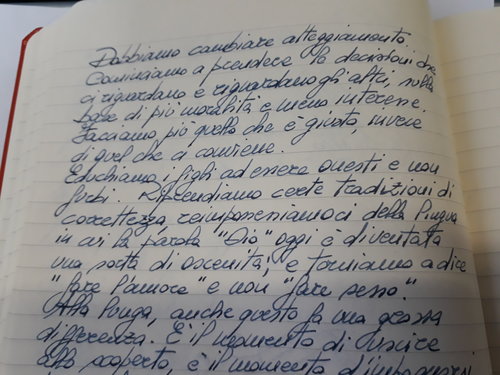 Dobbiamo cambiare atteggiamento.
Cominciamo a prendere le decisioni che
ci riguardano e riguardano gli altri, sulla
base di più moralità e meno interesse.
Facciamo più quello che è giusto, invece
di quel che ci conviene.
Educhiamo i figli ad essere onesti e non
furbi. Riprendiamo certe tradizioni di
correttezza, reimpossessiamoci della lingua
in cui la parola "Dio" oggi è diventata
una sorta di oscenità, e torniamo a dire
"fare l'amore" e non "fare sesso".
Alla lunga, anche questo fa una grossa
differenza. È il momento di uscire
allo scoperto, è il momento d'impegnarsi